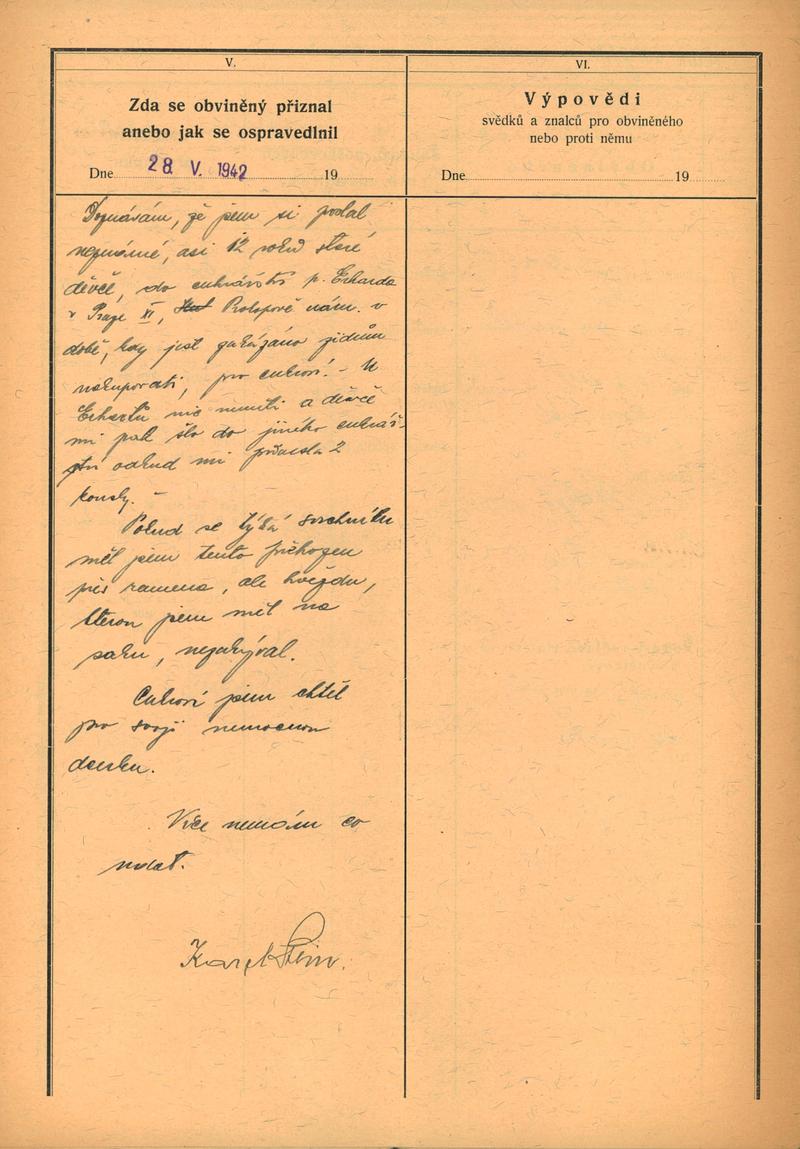 V.
Zda se obviněný přiznal
anebo jak se ospravedlnil
Dne 28. V. 1942 19
VI.
Výpovědi
svědků a znalců pro obviněného
nebo proti němu
Dne 19
Doznávám, že jem si poslal
neznámé, asi 12 roků staré
děvče, do cukrářství p. Erharda
v Praze XI, Prokopově nám. v
době, kdy jest zakázáno židům
nakupovati, pro cukroví. - U
Erhartů nic neměli a děvče
mi pak šlo do jiného cukrář-
ství odkud mi přinesla 2
kousky. -
Pokud se týká svrchníku
měl jsem tento přehozen
přes ramena, ale hvězdu,
kterou jsem měl na
saku, nezakrýval.
Cukroví jsem chtěl
pro svoji nemocnou
dcerku.
Více nemám co
udat.
Karel Stein.